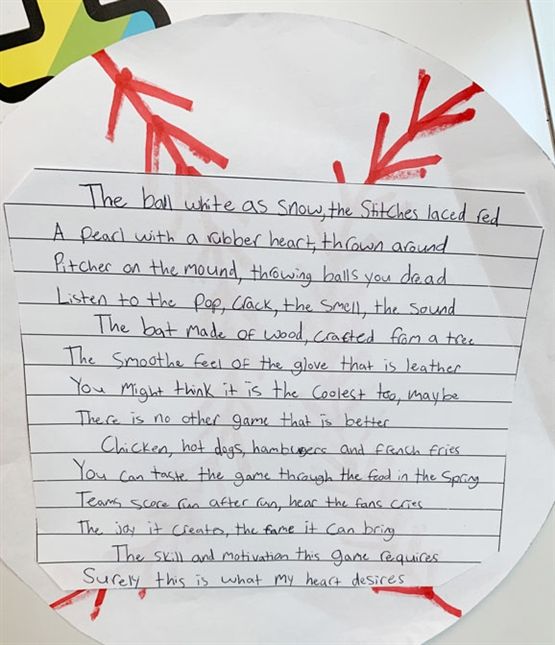 The ball white as snow, the Stitches laced red
A pearl with a rubber heart, thrown around
Pitcher on the mound, throwing balls you dread
Listen to the Pop, Crack, the smell, the sound
The bat made of wood, crafted from a tree
The Smoothe feel of the glove that is leather
You might think it is the Coolest too, maybe
There is no other game that is better
Chicken, hot dogs, hamburgers and french fries
You can taste the game through the food in the Spring
Teams score run after run, hear the fans cries
The joy it creates, the fame it can bring
The skill and motivation this game requires
Surely this is what my heart desires